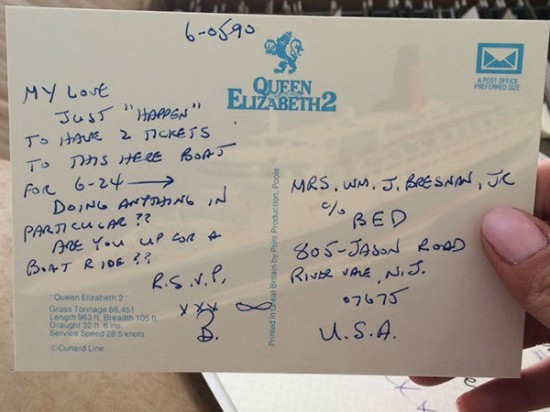 6-0590
QUEEN
ELIZABETH 2
A POST OFFICE
PREFERRED SIZE
MY LOVE
JUST "HAPPEN"
TO HAVE 2 TICKETS
TO THIS HERE BOAT
FOR 6-24 →
DOING ANYTHING IN
PARTICULAR ??
ARE YOU UP FOR A
BOAT RIDE ??
R.S.V.P.
XXX ∞
B.
"Queen Elizabeth 2"
Gross Tonnage 66,451
Length 963 ft. Breadth 105 ft.
Draught 32 ft. 6 ins.
Service Speed 28.5 knots
©Cunard Line
Printed in Great Britain by Print Production, Poole
MRS. WM. J. BRESNAN, JR
C/O
BED
805-JASON ROAD
RIVER VALE, N.J.
07675
U.S.A.